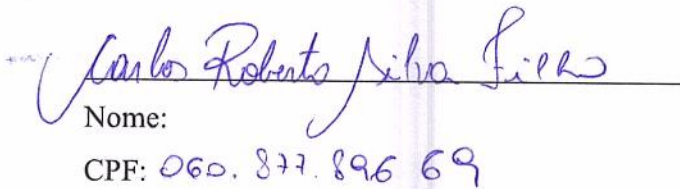 Carlos Roberto Silva Filho
Nome:
CPF: 060.877.896 69